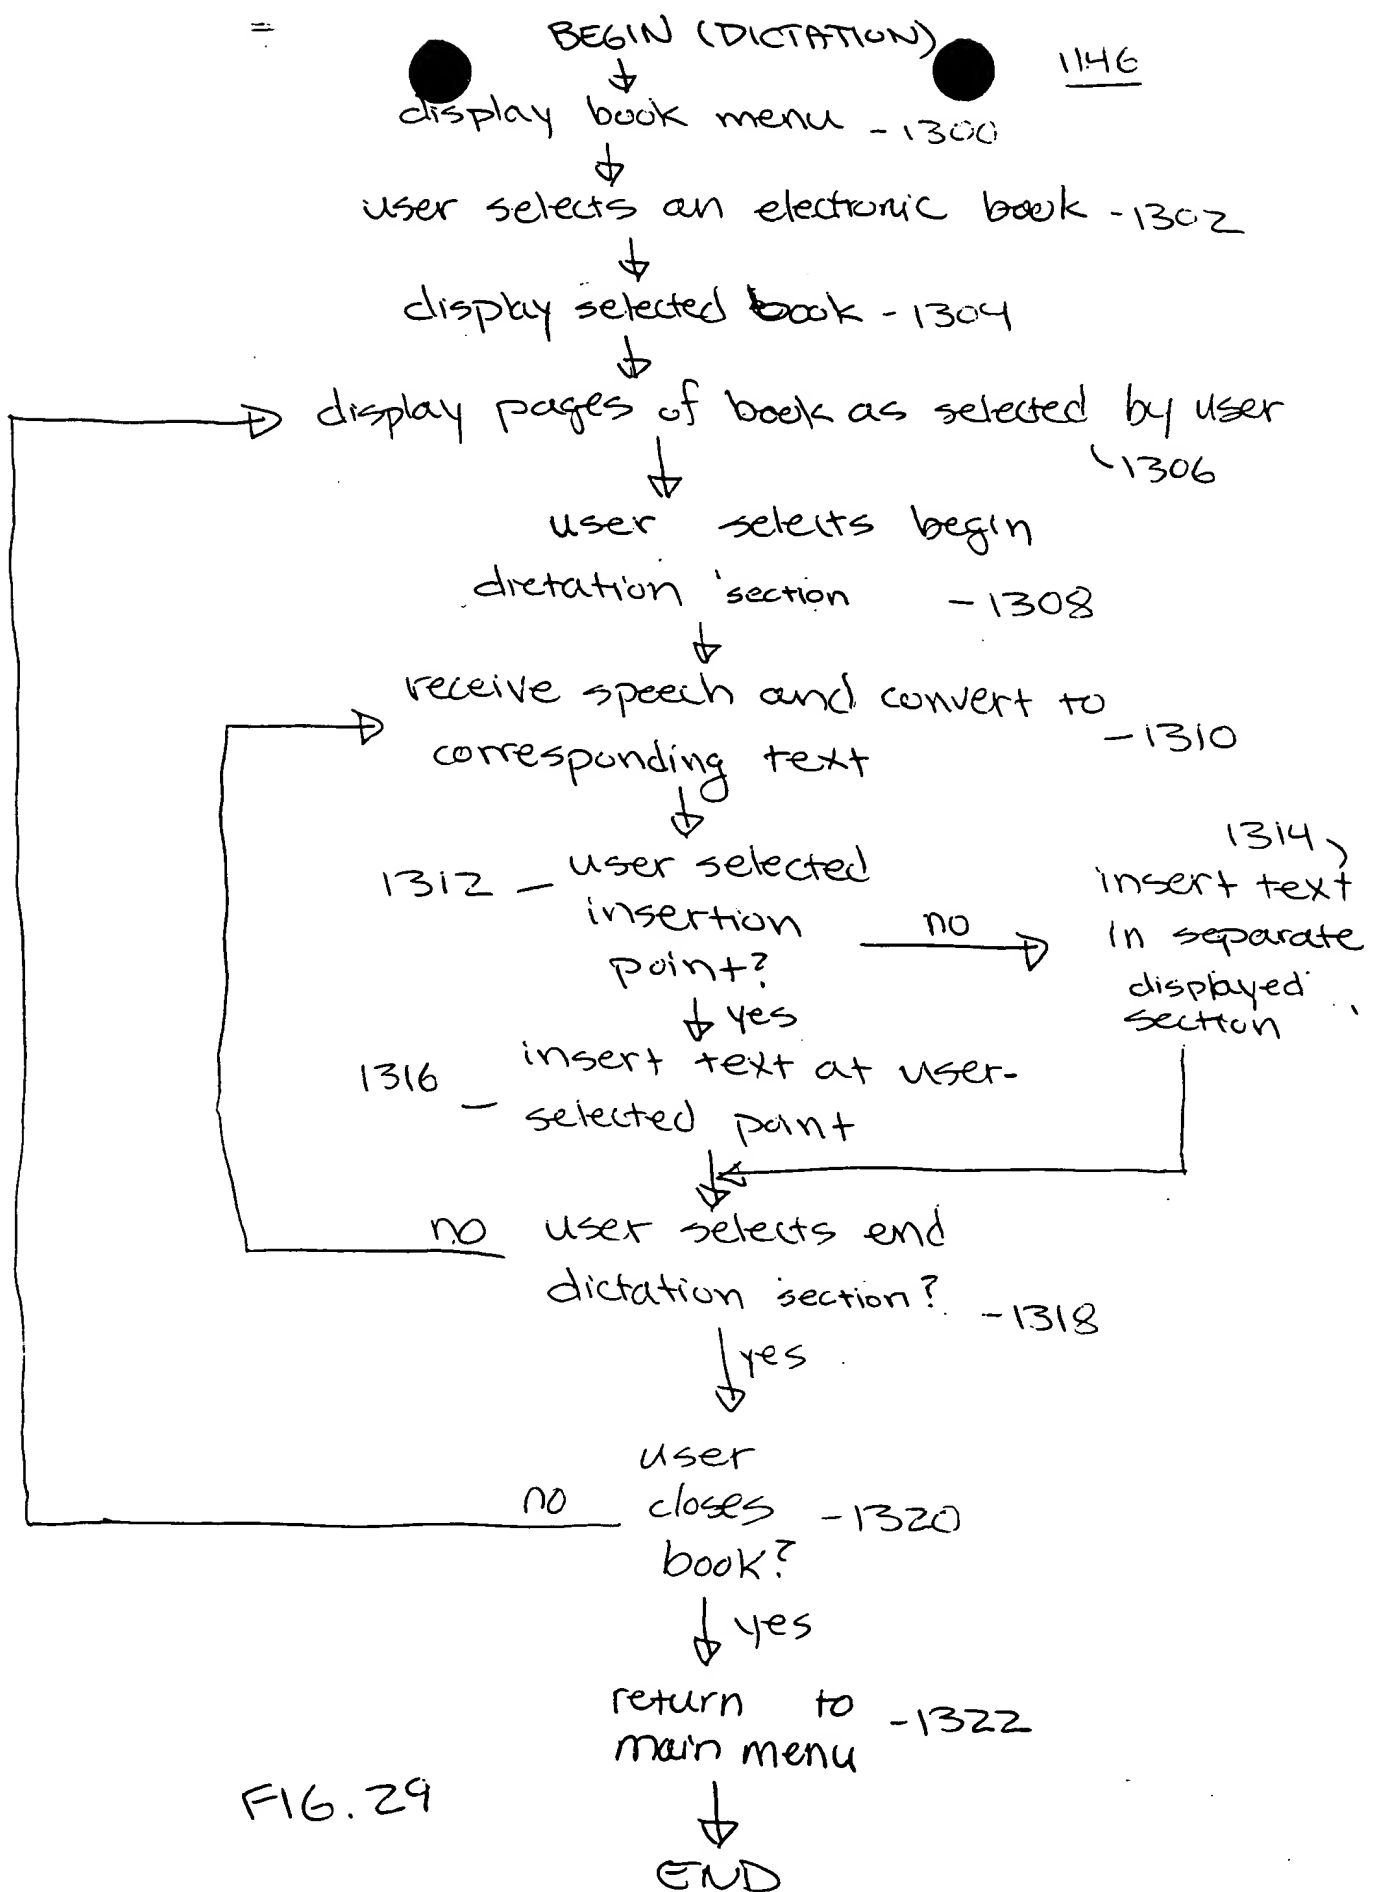 BEGIN (DICTATION)
1146
display book menu - 1300
user selects an electronic book - 1302
display selected book - 1304
display pages of book as selected by user
1306
user selects begin
dictation section - 1308
receive speech and convert to
corresponding text - 1310
1312 - user selected
insertion
point?
no
1314
insert text
in separate
displayed
section
yes
1316 - insert text at user-
selected point
no user selects end
dictation section? - 1318
yes
user
no closes - 1320
book?
yes
return to - 1322
main menu
FIG. 29
END